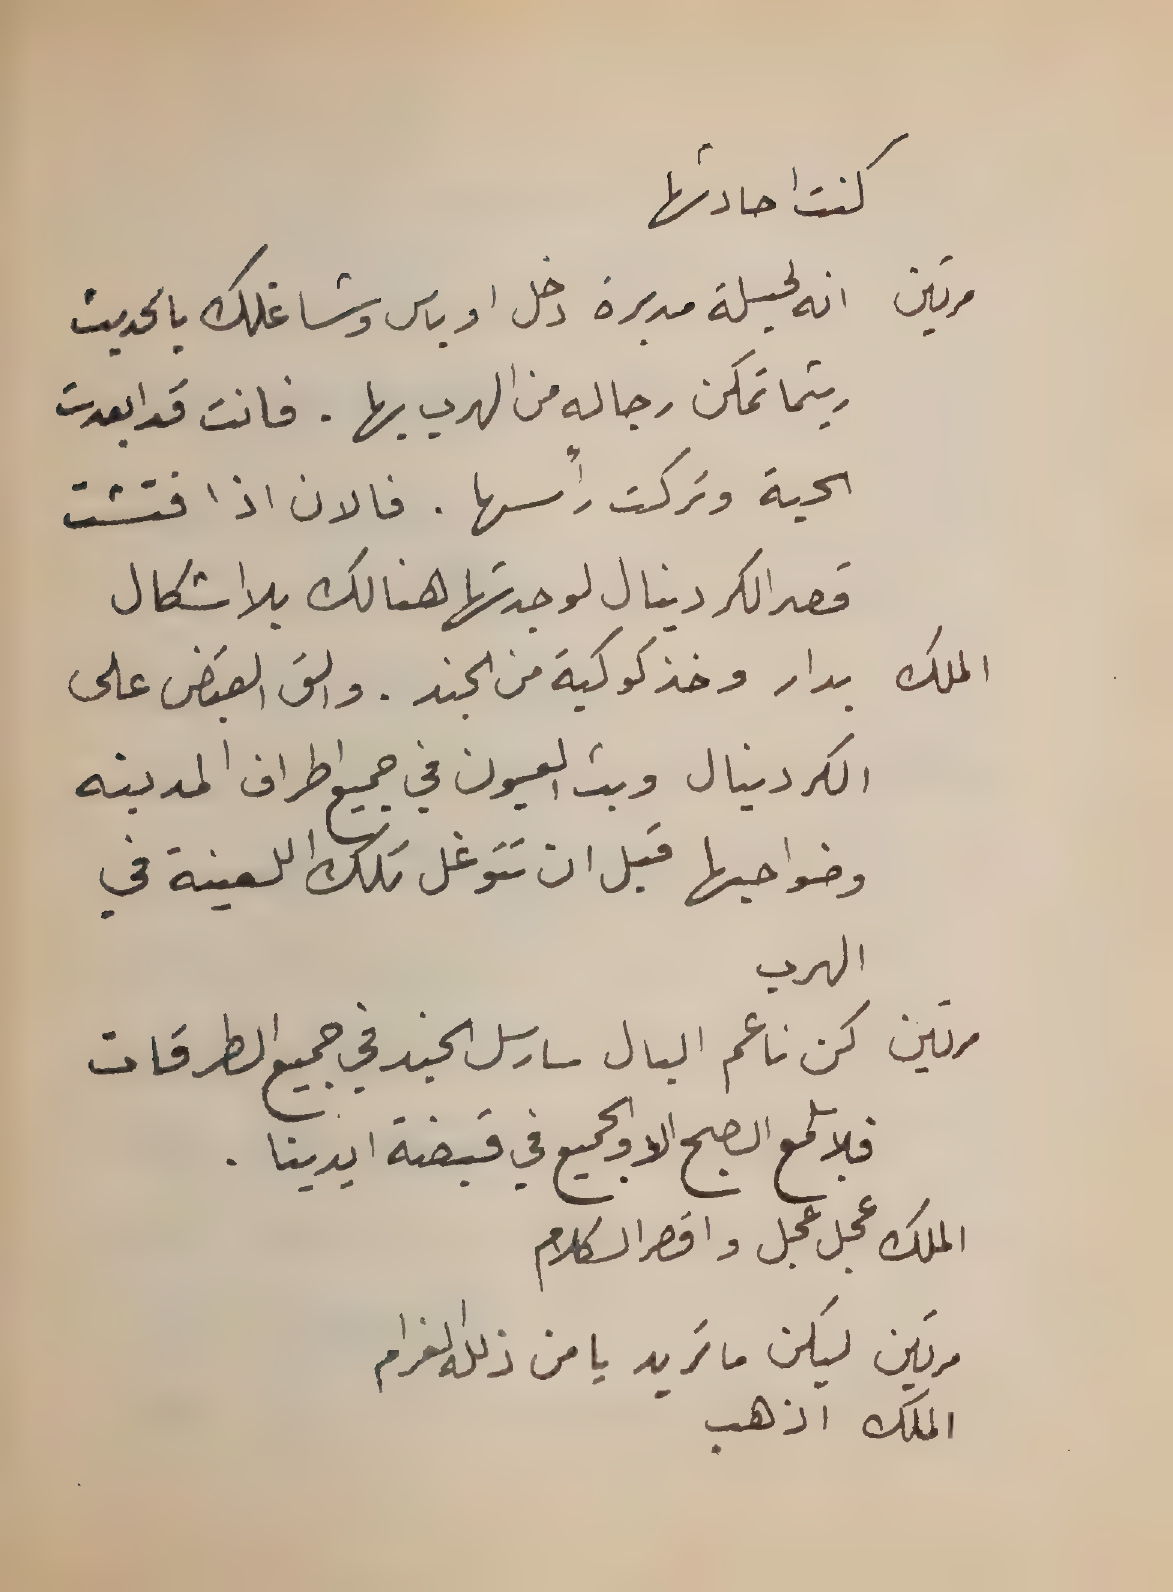 كنت احادثها
مرتين انه لحيلة مدبرة دخل اوباس وشاغلك بالحديث
ريثما تمكن رجاله من الهرب بها . فانت قد ابعدت
الحية وتركت رأسها . فالان اذا فتشت
قصر الكردينال لوجدتها هنالك بلا اشكال
الملك بدار وخذ كوكبة من الجند . والق القبض على
الكردينال وبث العيون في جميع اطراف المدينه
وضواحيها قبل ان تتوغل تلك اللعينة في
الهرب
مرتين كن ناعم البال سارسل الجند في جميع الطرقات
فلا الصبح الا والجميع في قبضة ايدينا .
الملك عجل عجل واقصر الكلام
مرتين ليكن ما تريد يا من ذلله الغرام
الملك اذهب